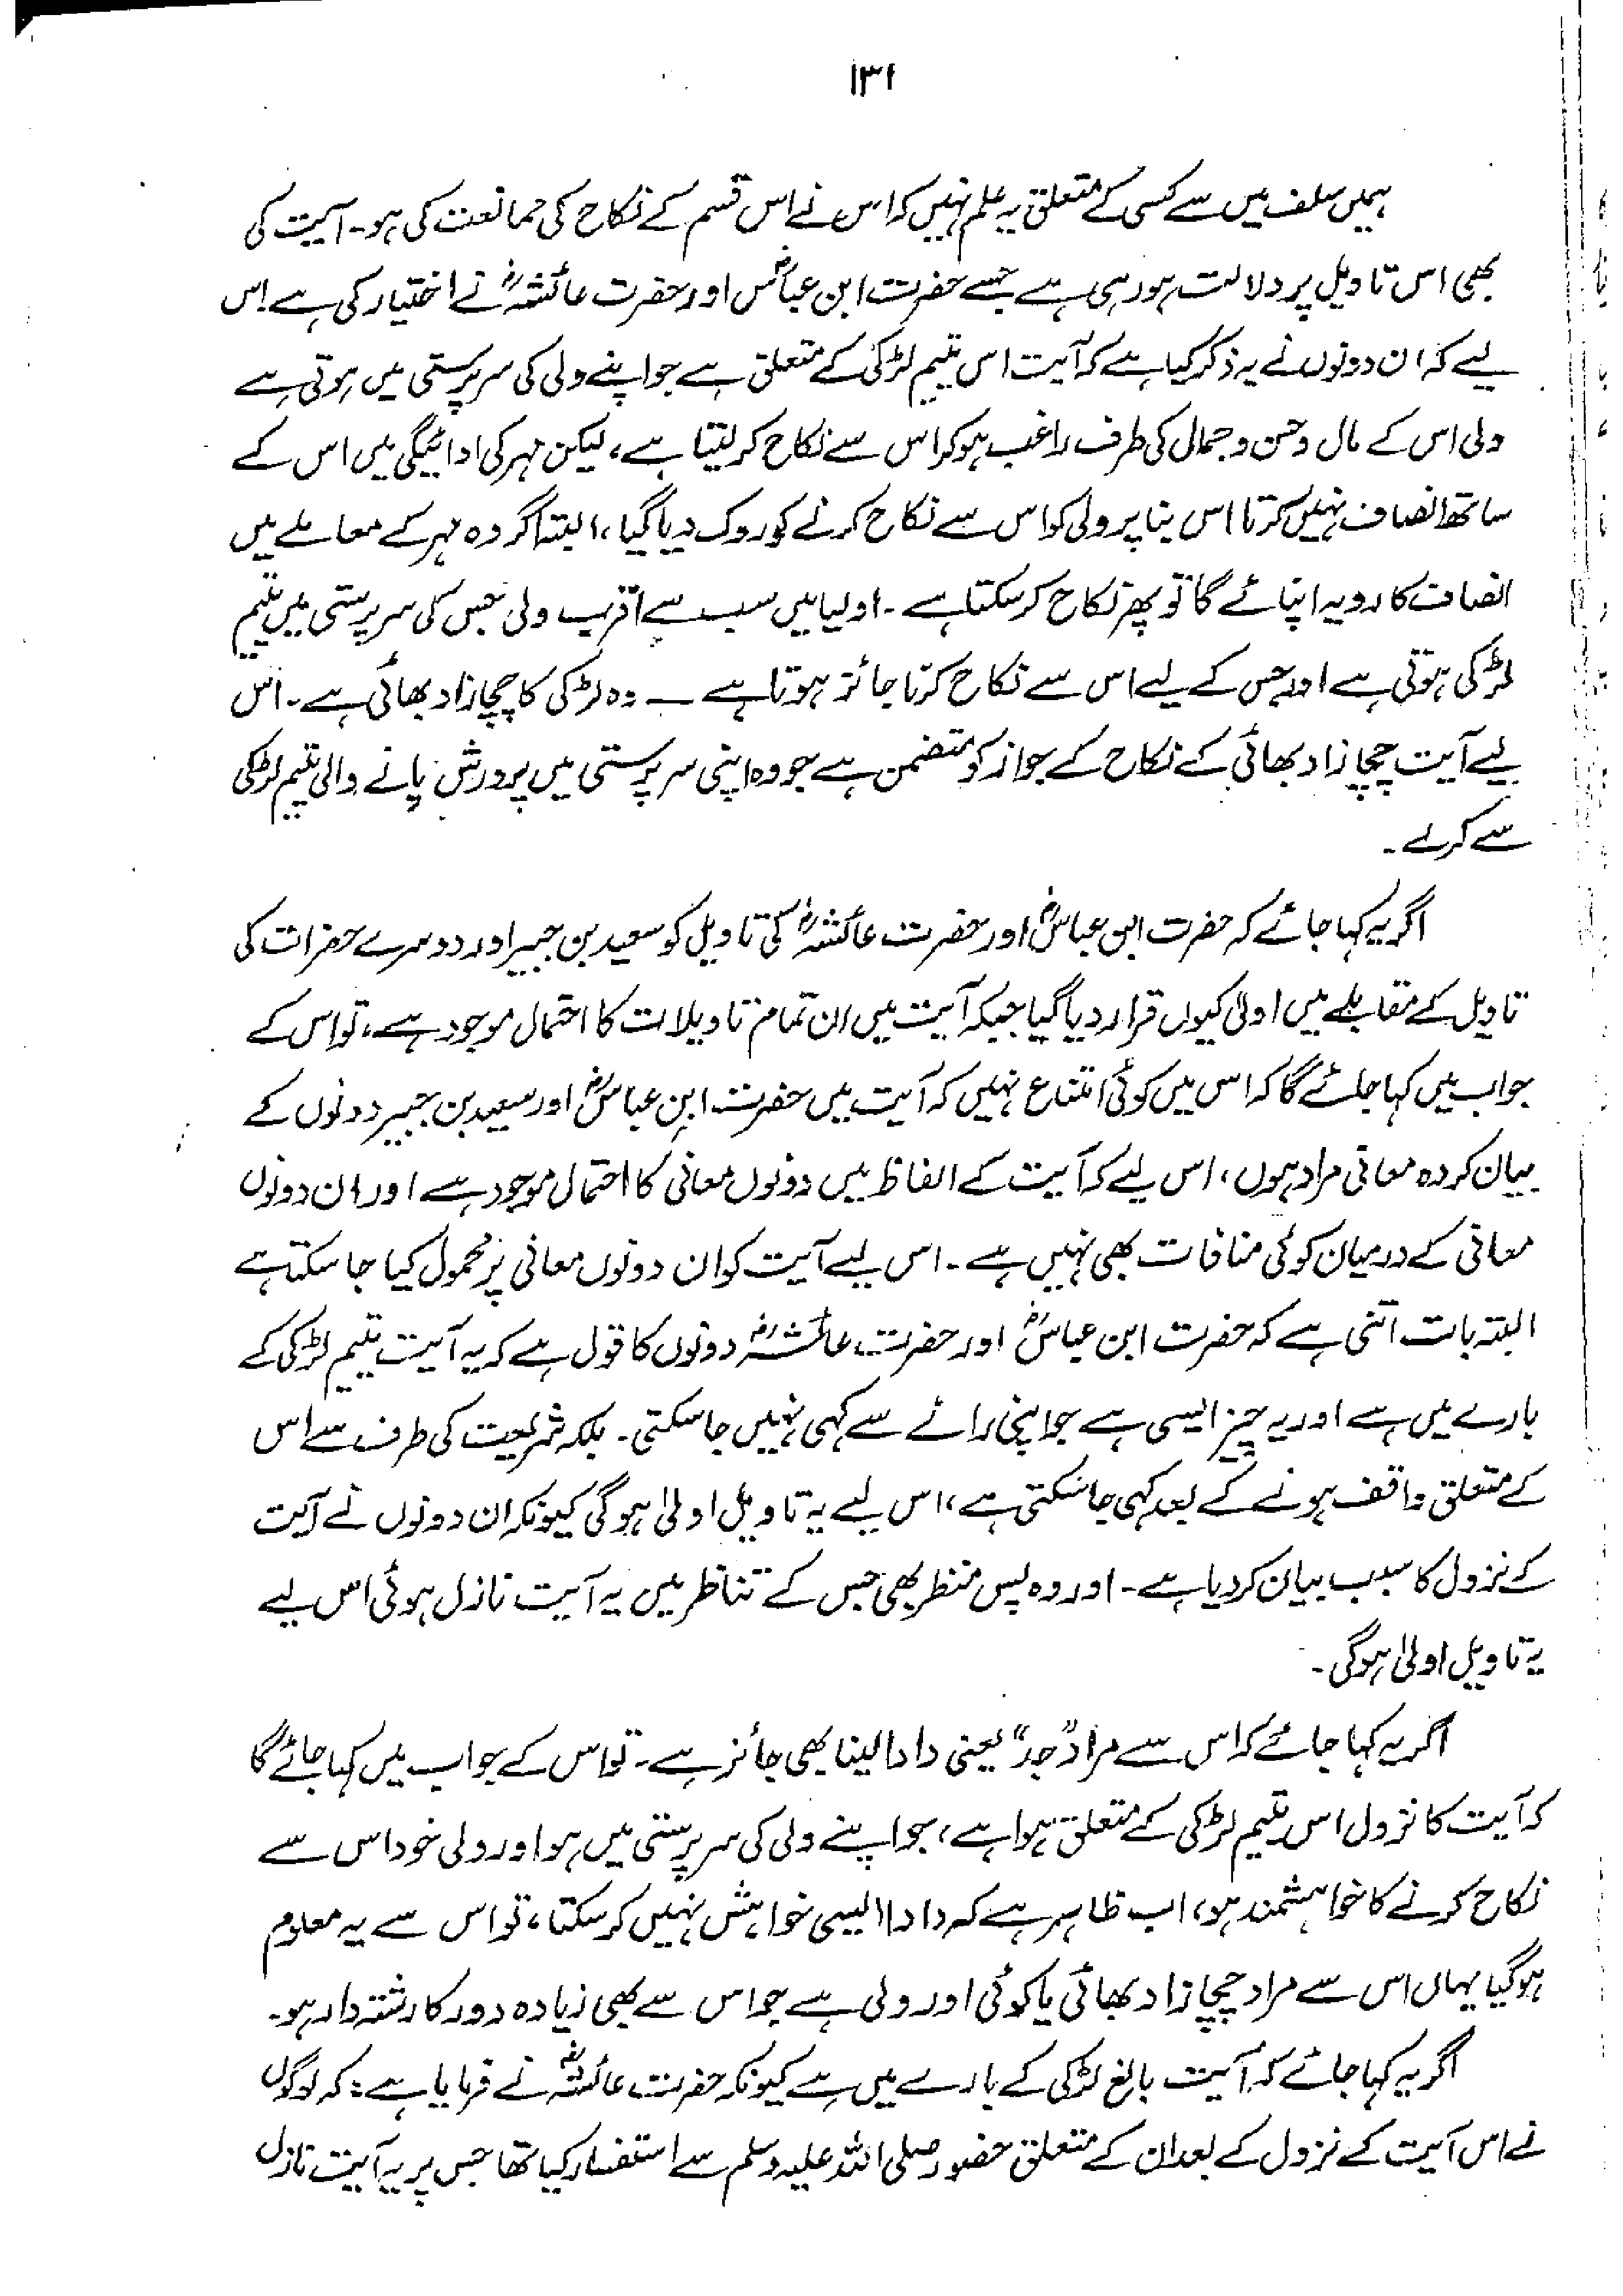 ۱۳۱
ہمیں سلف میں سے کسی کے متعلق یہ علم نہیں کہ اس نے اس قسم کے نکاح کی ممانعت کی ہو۔ آیت کی
بھی اس تاویل پر دلالت ہو رہی ہے جسے حضرت ابن عباسؓ اور حضرت عائشہؓ نے اختیار کی ہے اس
لیے کہ ان دونوں نے یہ ذکر کیا ہے کہ آیت اس یتیم لڑکی کے متعلق ہے جو اپنے ولی کی سرپرستی میں ہوتی ہے
ولی اس کے مال و حسن و جمال کی طرف راغب ہو کر اس سے نکاح کر لیتا ہے، لیکن مہر کی ادائیگی میں اس کے
ساتھ انصاف نہیں کرتا اس بنا پر ولی کو اس سے نکاح کرنے کو روک دیا گیا، البتہ اگر وہ مہر کے معاملے میں
انصاف کا رویہ اپنائے گا تو پھر نکاح کر سکتا ہے۔ اولیا میں سب سے اقرب ولی جس کی سرپرستی میں یتیم
لڑکی ہوتی ہے اور جس کے لیے اس سے نکاح کرنا جائز ہوتا ہے ــ وہ لڑکی کا چچازاد بھائی ہے۔ اس
لیے آیت چچازاد بھائی کے نکاح کے جواز کو متضمن ہے جو وہ اپنی سرپرستی میں پرورش پانے والی یتیم لڑکی
سے کرلے۔
اگر یہ کہا جائے کہ حضرت ابن عباسؓ اور حضرت عائشہؓ کی تاویل کو سعید بن جبیر اور دوسرے حضرات کی
تاویل کے مقابلے میں اولیٰ کیوں قرار دیا گیا جبکہ آیت میں ان تمام تاویلات کا احتمال موجود ہے، تو اس کے
جواب میں کہا جائے گا کہ اس میں کوئی امتناع نہیں کہ آیت میں حضرت ابن عباسؓ اور سعید بن جبیر دونوں کے
بیان کردہ معانی مراد ہوں، اس لیے کہ آیت کے الفاظ میں دونوں معانی کا احتمال موجود ہے اور ان دونوں
معانی کے درمیان کوئی منافات بھی نہیں ہے۔ اس لیے آیت کو ان دونوں معانی پر محمول کیا جا سکتا ہے
البتہ بات اتنی ہے کہ حضرت ابن عباسؓ اور حضرت عائشہؓ دونوں کا قول ہے کہ یہ آیت یتیم لڑکی کے
بارے میں ہے اور یہ چیز ایسی ہے جو اپنی رائے سے کہی نہیں جا سکتی۔ بلکہ شریعت کی طرف سے اس
کے متعلق واقف ہونے کے بعد کہی جا سکتی ہے، اس لیے یہ تاویل اولیٰ ہوگی کیونکہ ان دونوں نے آیت
کے نزول کا سبب بیان کر دیا ہے۔ اور وہ پس منظر بھی جس کے تناظر میں یہ آیت نازل ہوئی اس لیے
یہ تاویل اولیٰ ہوگی۔
اگر یہ کہا جائے کہ اس سے مراد "جد" یعنی دادا لینا بھی جائز ہے۔ تو اس کے جواب میں کہا جائے گا
کہ آیت کا نزول اس یتیم لڑکی کے متعلق ہوا ہے، جو اپنے ولی کی سرپرستی میں ہو اور ولی خود اس سے
نکاح کرنے کا خواہشمند ہو، اب ظاہر ہے کہ دادا ایسی خواہش نہیں کر سکتا، تو اس سے یہ معلوم
ہو گیا یہاں اس سے مراد چچازاد بھائی یا کوئی اور ولی ہے جو اس سے بھی زیادہ دور کا رشتہ دار ہو۔
اگر یہ کہا جائے کہ آیت بالغ لڑکی کے بارے میں ہے کیونکہ حضرت عائشہؓ نے فرمایا ہے: کہ لوگوں
نے اس آیت کے نزول کے بعد ان کے متعلق حضور صلی اللہ علیہ وسلم سے استفسار کیا تھا جس پر یہ آیت نازل